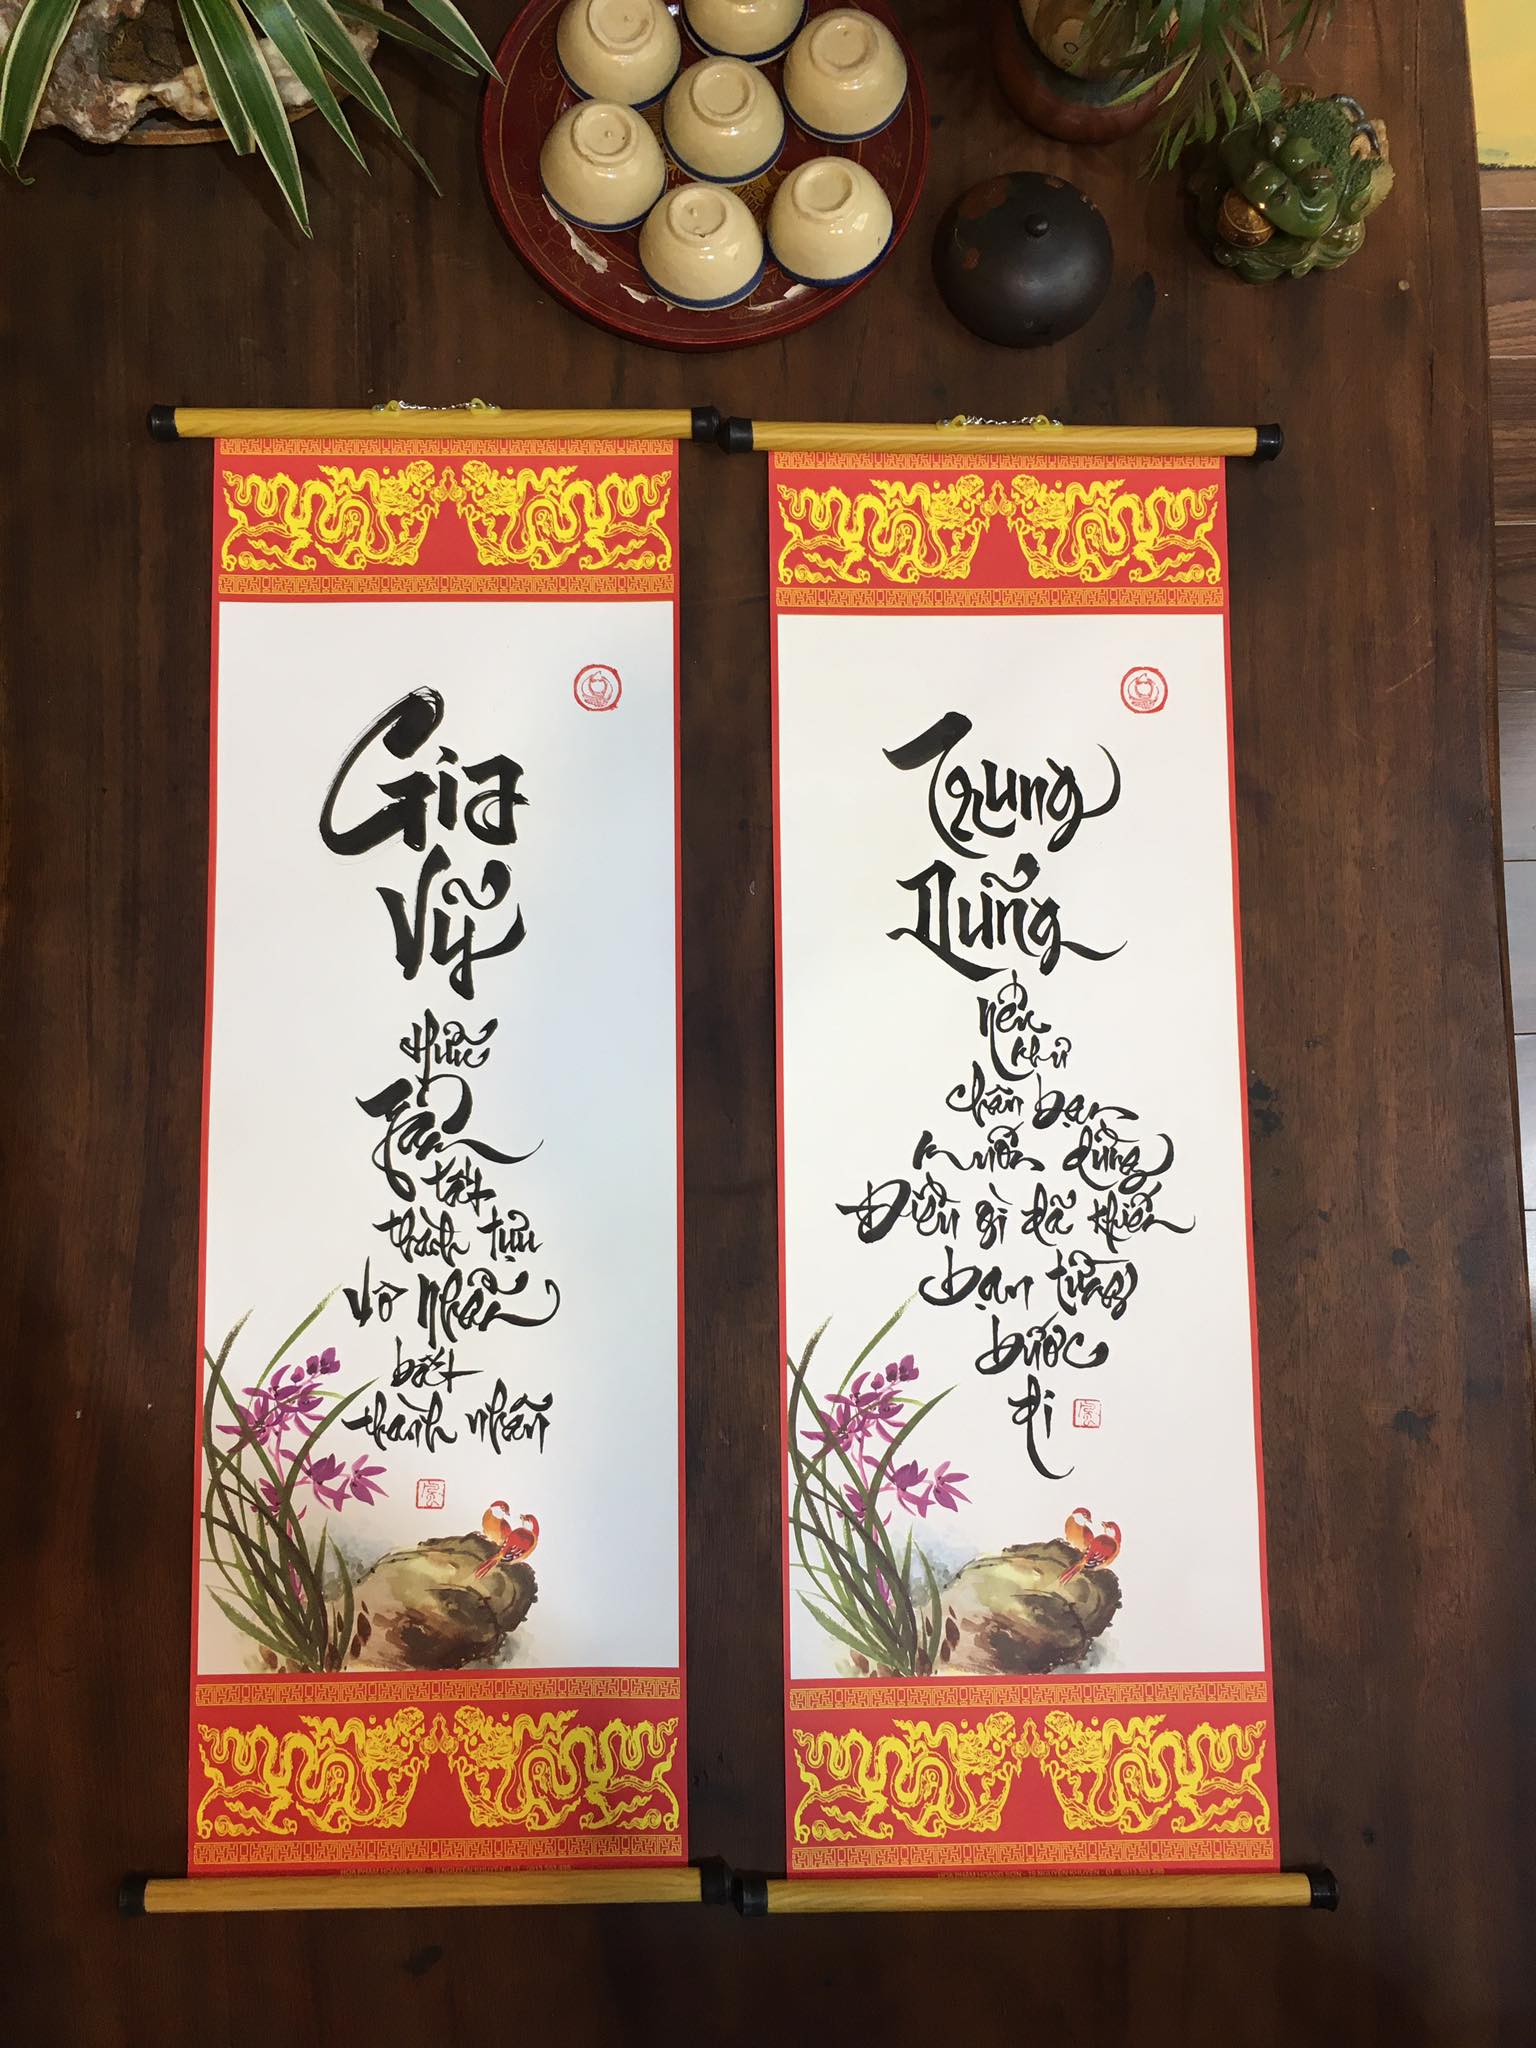 Gia
Vỹ
Hữu
Tâm
tất
thành tựu
Vô Nhẫn
bất
thành nhân
Trung
Dũng
Nếu
khó
chân bạn
muốn dừng
Điều gì đã khiến
bạn từng
bước
đi